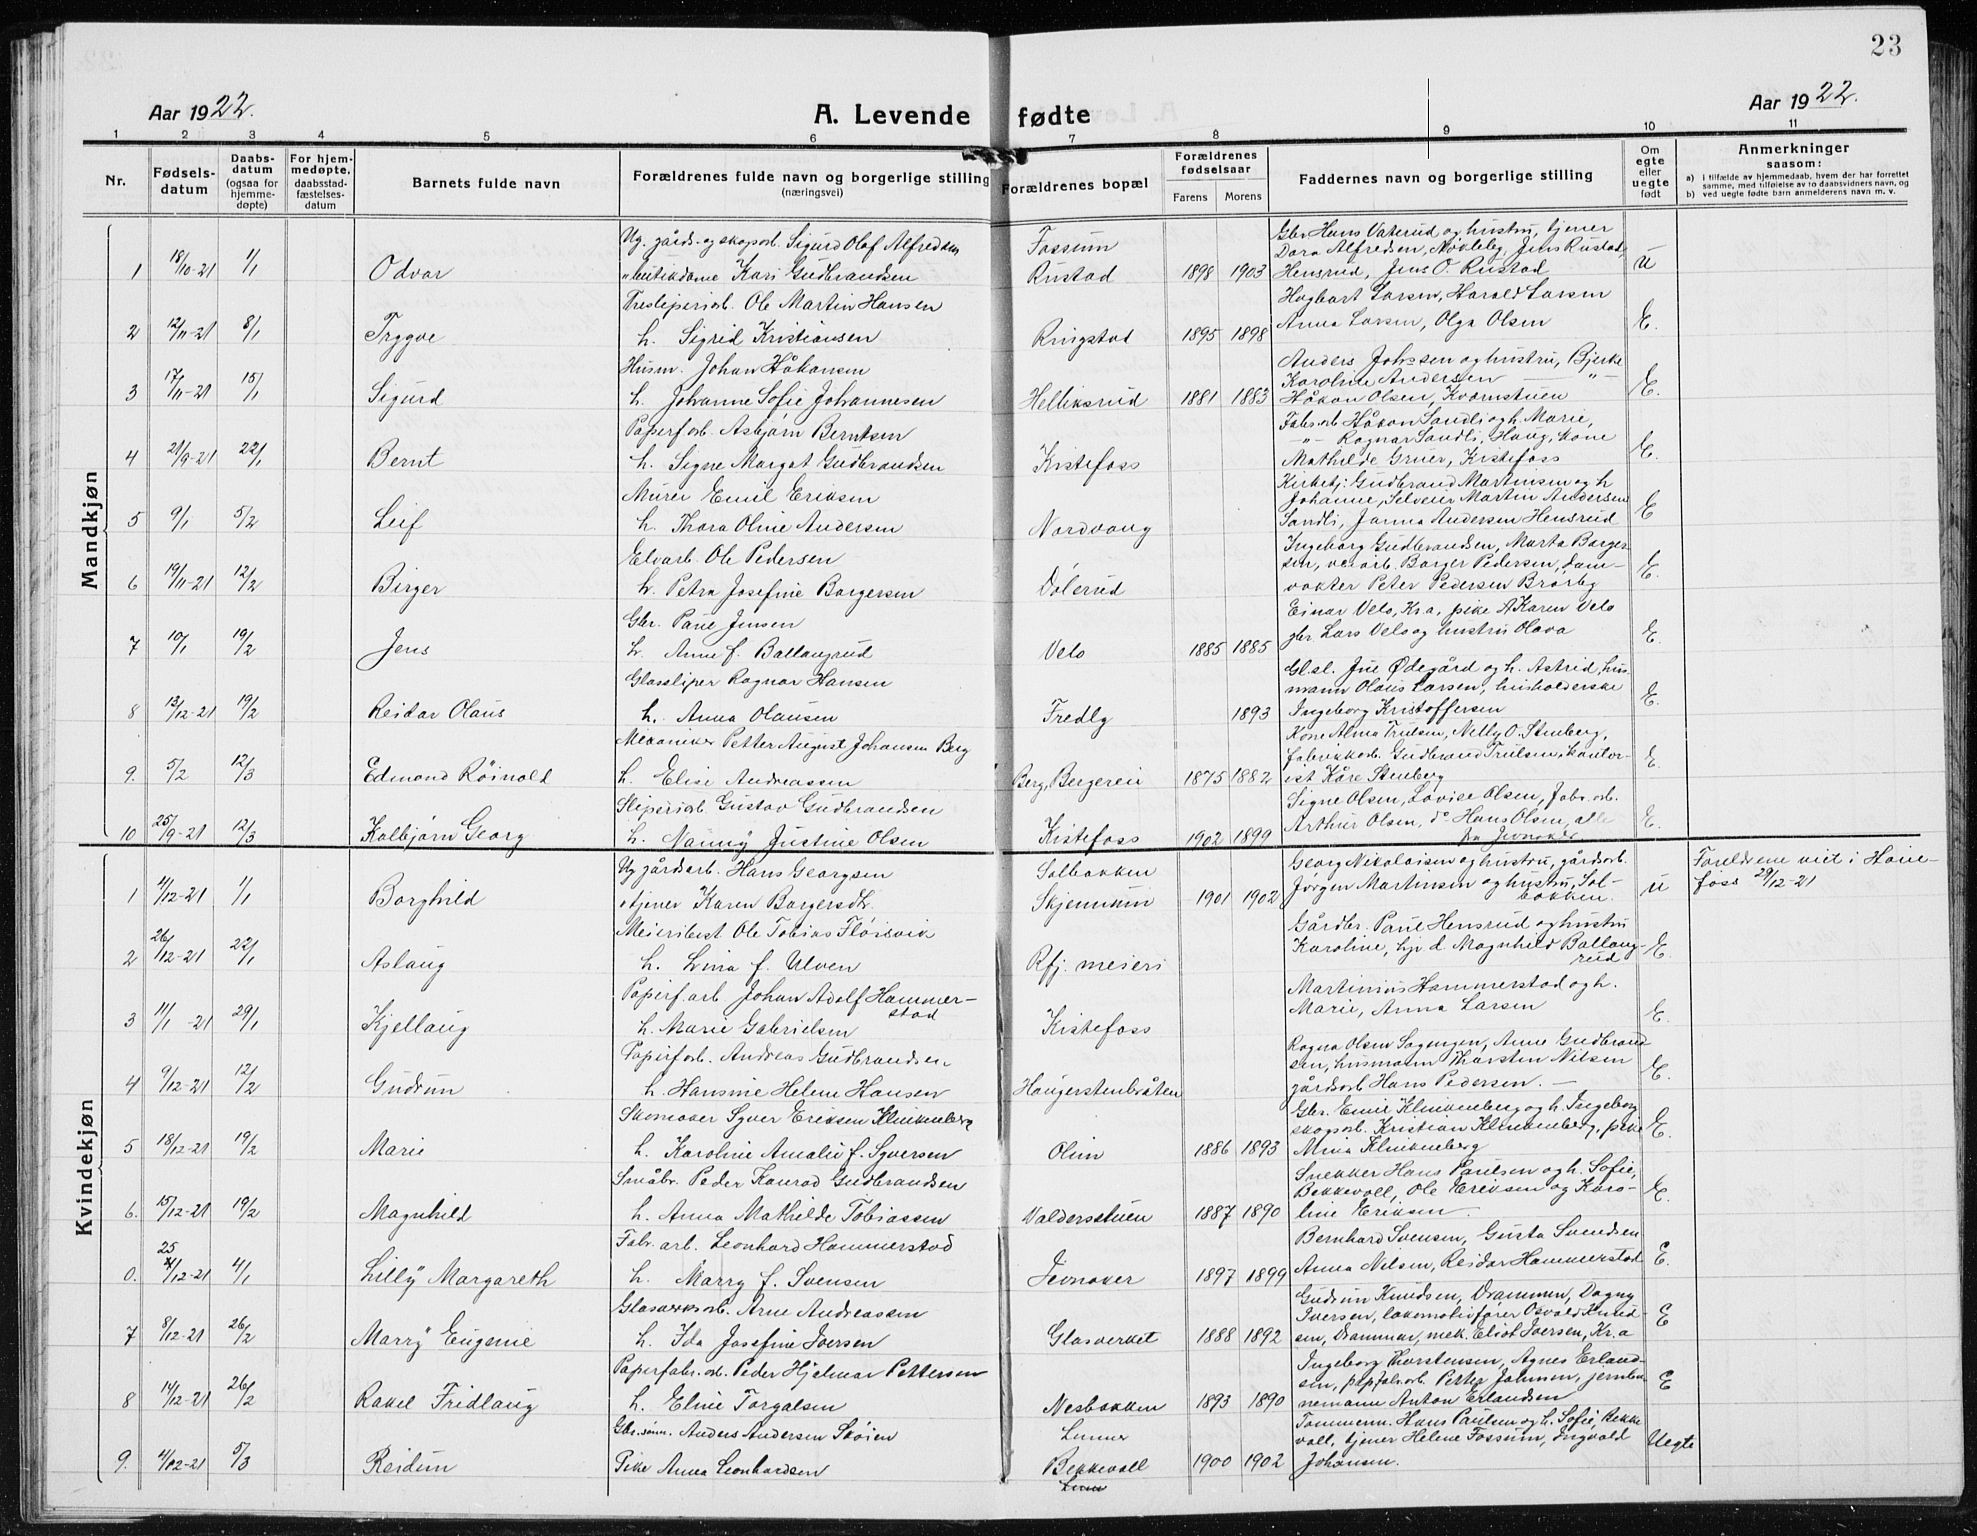 23
Aar 1922.
A. Levende fødte
Aar 1922.
1 2 3 4 5 6 7 8 9 10 11
Nr.
Fødsels-
datum
Daabs-
datum
(ogsaa for
hjemme-
døpte)
For hjem-
medøpte,
daabsstad-
fæstelses-
datum
Barnets fulde navn
Forældrenes fulde navn og borgerlige stilling
(næringsvei)
Forældrenes bopæl
Forældrenes
fødselsaar
Farens Morens
Faddernes navn og borgerlige stilling
Om
egte
eller
uegte
født
Anmerkninger
saasom:
a) i tilfælde av hjemmedaab, hvem der har forrettet
samme, med tilføielse av to daabsvidners navn, og
b) ved uegte fødte barn anmelderens navn m. v.
Mandkjøn
Ug. gårds- og skogsarb. Sigurd Olaf Alfredsen Fossum Gbr. Hans Vaterud og hustru, tjener
Dora Alfredsen, Nøkleby, Jens Rustad,
1 18/10-21 1/1 Odvar butikdame Kari Gudbrandsen Rustad 1898 1903 Hensrud, Jens O. Rustad u
Tresliperiarb. Ole Martin Hansen Hagbart Larsen, Harald Larsen
2 12/11-21 8/1 Trygve h. Sigrid Kristiansen Ringstad 1895 1898 Anna Larsen, Olga Olsen E.
Husm. Johan Håkansen Anders Johssen og hustru, Bjerke
Karoline Andersen — " —
3 17/11-21 15/1 Sigurd h. Johanne Sofie Johannesen Helliksrud 1881 1883 Håkon Olsen, Kvernstuen E.
Papirfarb. Asbjørn Berntsen Fabr.arb Håkon Sandli og h. Marie,
— " — Ragnar Sandli, Haug, kone
4 21/9-21 22/1 Bernt h. Signe Margot Gudbrandsen Kistefoss Mathilde Gruer, Kistefoss E.
Murer Emil Eriksen Kirketj. Gudbrand Martinsen og h
Johanne, Selveier Martin Andersen
5 9/1 5/2 Leif h. Thora Oline Andersen Nordvang Sandli, Janna Andersen Hensrud E
Elvarb. Ole Pedersen Ingeborg Gudbrandsen, Marta Borger-
sen, veiarb. Borger Pedersen, Dam-
6 19/11-21 12/2 Birger h. Petra Josefine Borgersen Dølerud vokter Peter Pedersen Brørby E.
Gbr. Paul Jensen Einar Velo, Kr.a, pike A Karen Velo
7 10/1 19/2 Jens h. Anne f. Ballangrud Velo 1885 1885 gbr. Lars Velo og hustru Olava E.
Glassliper Ragnar Hansen Gl.sl. Jne Ødegård og h. Astrid, hus
mann Olaus Larsen, husholderske
8 13/12-21 19/2 Reidar Olaus h. Anna Olausen Fredly 1893 Ingeborg Kristoffersen E.
Mekaniker Petter August Johansen Berg Kone Alma Trulsen, Nelly O. Stenberg,
fabrikkarb. Gudbrand Trulsen, kontor-
9. 5/2 12/3 Edmond Røinald h. Elise Andreassen Berg, Bergereie 1875 1882 ist Kåre Stenberg E.
Sliperiarb. Gustav Gudbrandsen Signe Olsen, Lovise Olsen, Fabr. arb.
Arthur Olsen, do Hans Olsen, alle
10 25/9-21 12/3 Kolbjørn Georg h. Nanny Justine Olsen Kistefoss 1902 1899 fra Jevnaker E.
Kvindekjøn
Ug gårdsarb. Hans Georgsen Solbakken Georg Nikolaisen og hustru, gårdsarb. Foreldrene viet i Høne-
Jørgen Martinsen og hustru, Sol- foss 29/12-21
1 4/12-21 1/1 Borghild tjener Karen Borgersdtr. Skjerum 1901 1902 bakken. u
Meieribest. Ole Tobias Fløisvik Gårdbr. Paul Hensrud og hustru
2 26/12-21 22/1 Aslaug h. Lina f. Ulven Rfj. meieri Karoline, hjv d. Magnhild Ballang-
rud E.
Papirf.arb Johan Adolf Hammer-
stad Martinius Hammerstad og h.
3 11/1-21 29/1 Kjellaug h. Marie Gabrielsen Kistefoss Marie, Anna Larsen E.
Papirfarb. Andreas Gudbrandsen Ragna Olsen Sagengen, Anne Gudbrand
sen, husmann Thorsten Nilsen
4 9/12-21 12/2 Gudrun h. Hansine Helene Hansen Haugerstenbråten gårdsarb Hans Pedersen. E.
Skomaker Syver Eriksen Klinkenberg Gbr. Emil Klinkenberg og h. Ingeborg
skogsarb. Kristian Klinkenberg, pike
5 18/12-21 19/2 Marie h. Karoline Amalie f. Syversen Olim 1886 1893 Mina Klinkenberg E.
Småbr. Peder Konrad Gudbrandsen Snekker Hans Paulsen og h. Sofie,
Bekkevoll, Ole Eriksen og Karo-
6. 15/12-21 19/2 Magnhild h. Anna Mathilde Tobiassen Valdersstuen 1887 1890 line Eriksen E.
Fabr. arb. Leonhard Hammerstad Bernhard Svensen, Gusta Svendsen
0. 25/12-21 4/1 Lilly Margareth h. Marry f. Svensen Jevnaker 1897 1899 Anna Nilsen, Reidar Hammerstad E.
Glasverksarb. Arne Andreassen Gudrun Knudsen, Drammen, Dagny
Iversen, lokomotivfører Osvald Knud-
7 8/12-21 26/2 Marry Eugenie h. Ida Josefine Iversen Glasverket 1888 1892 sen, Drammen, mek. Eliot Iversen, Kr.a E
Papirfabr.arb. Peder Hjelmar Pettersen Ingeborg Thorstensen, Agnes Erland-
sen, papfabr.arb. Petter Johansen, jernba
8 14/12-21 26/2 Rakel Fridlaug h. Eline Torgalsen Nesbakken 1893 1890 nemann Anton Erlandsen E
Gbr.sønn. Anders Andersen Skøien Lunner Tømmerm. Hans Paulsen og h. Sofie, Bekke
voll, tjener Helene Fossum, Ingvald
9. 4/12-21 5/3 Reidun Pike Anna Leonhardsen Bekkevoll 1900 1902 Johansen. Uegte